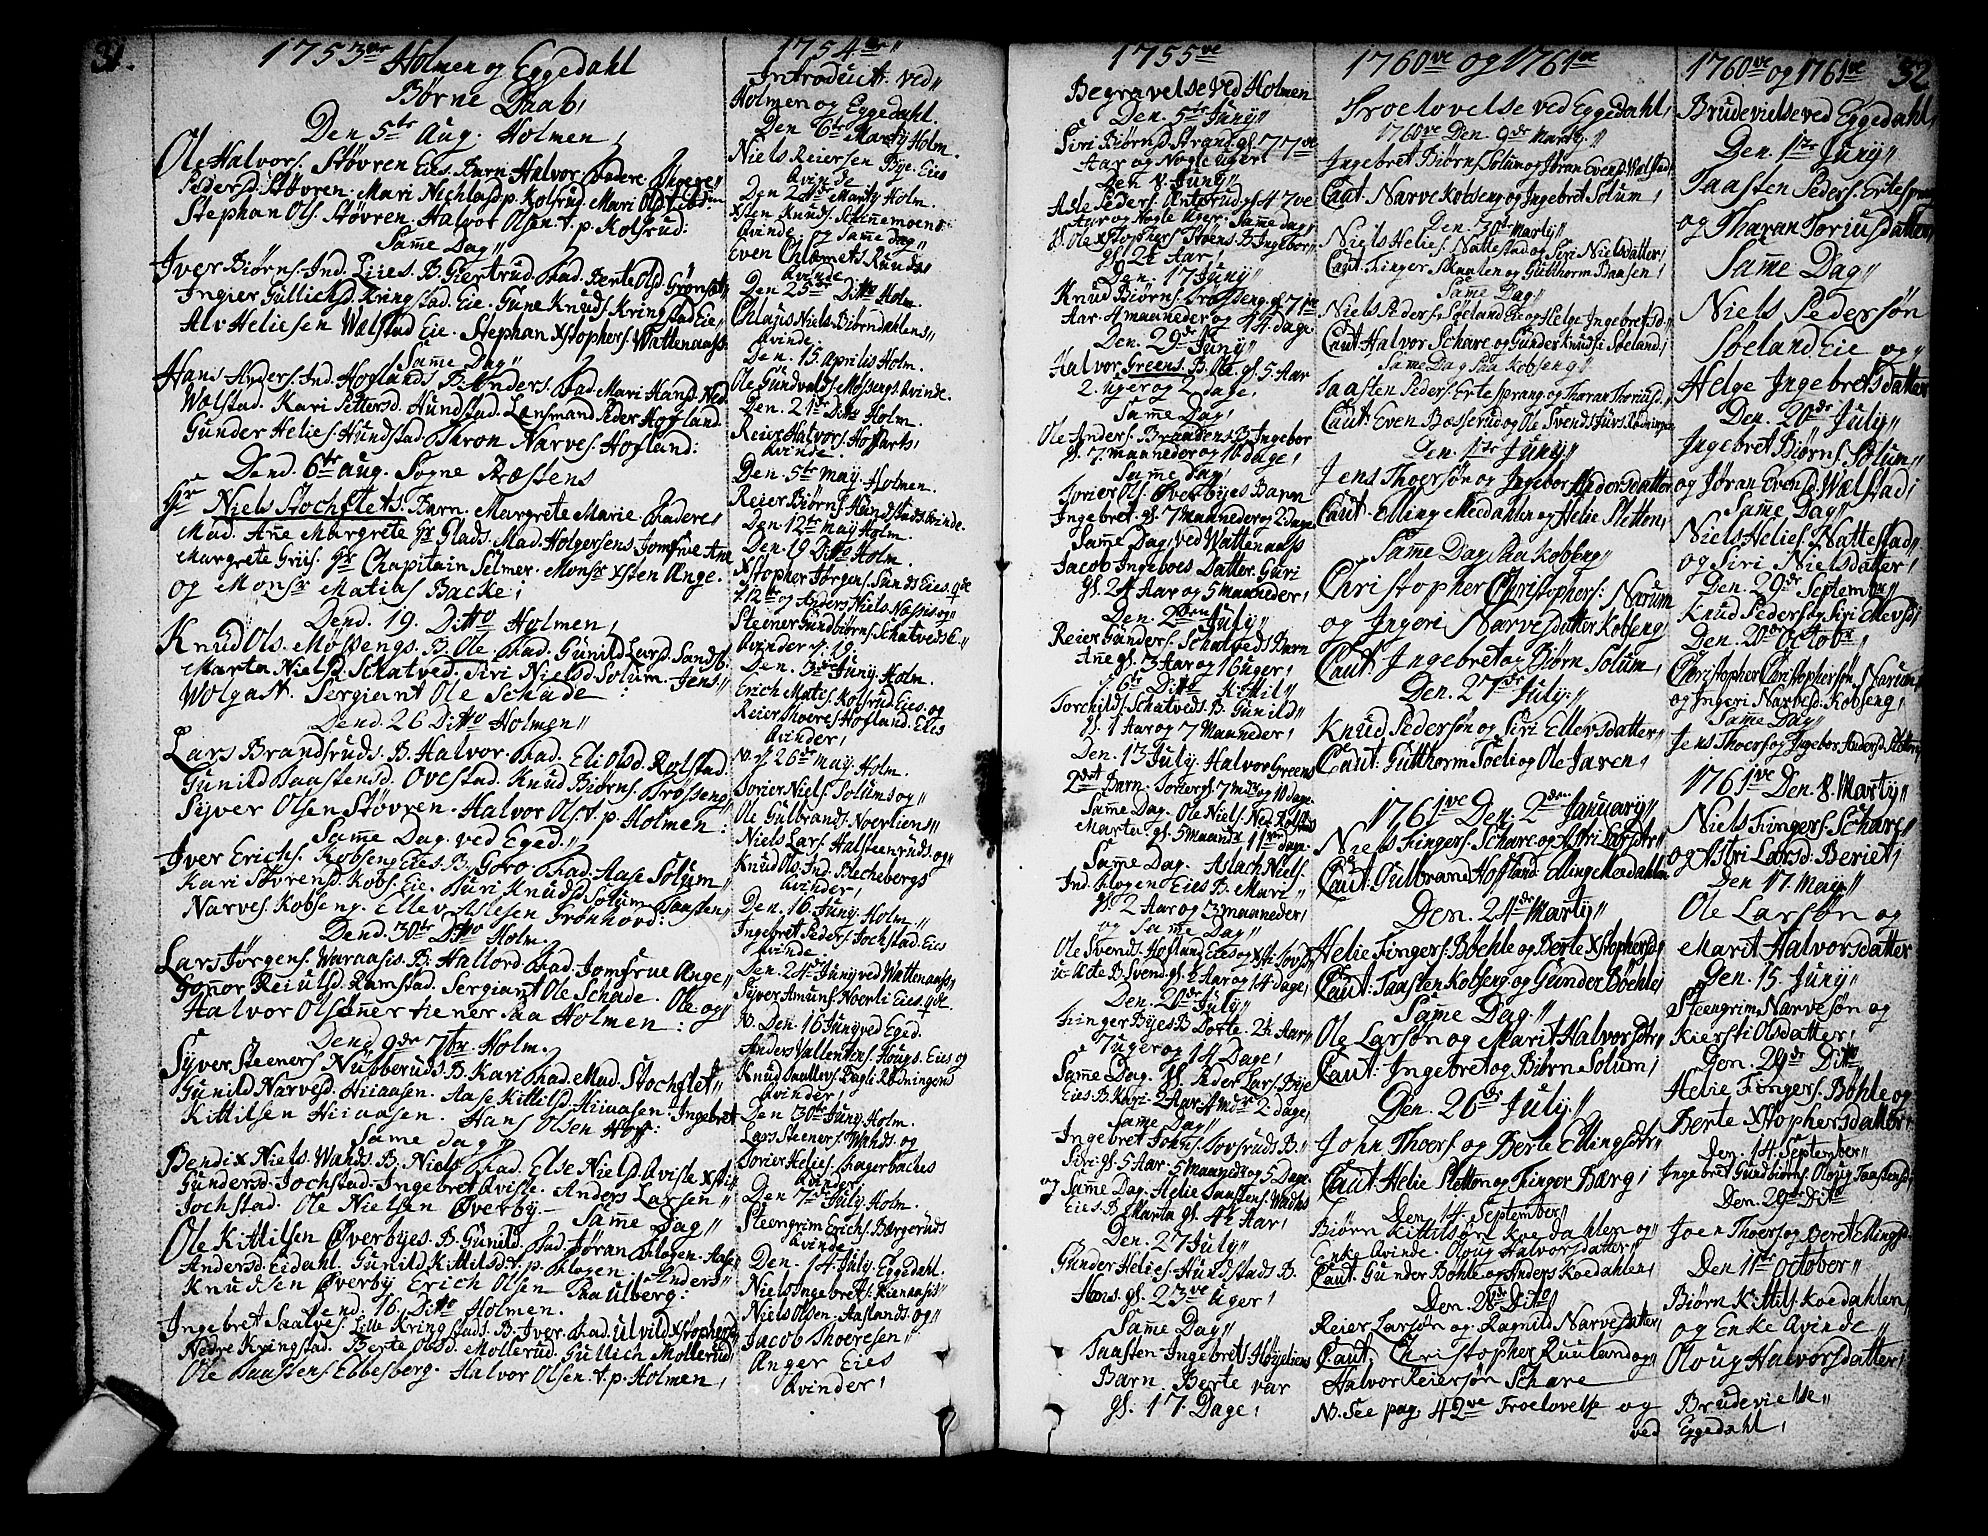 31.
1753ve Holmen og Eggedahl
Børne Daab,
Den 5te Aug. Holmen,
Ole Halvors. Støvren Eies. Barn Halvor.
Peders D. Støvren. Mari Kolsrud. Mari
Stephan Ols. Støvren. Halvor Olsen. v. p. Kolsrud:
Same Dag
Iver Biørns. Ind. B. Giertrud. Fad. Berte Olsd.
Ingier Gullichsd. Kringstad Eie. Gune Knuds. Kringstad Eie
Alv Heliesen Wælstad Eie. Stephan Xstophers. Wattenaas
Same Dag
Hans Anders. Ind. Hoflands B. Anders. Fad. Mari Hansd. Ned.
Wælstad. Kari Pettersd. Hundstad. Lensmand Peder Hofland.
Gunder Helies. Hundstad. Thron Narves. Hofland:
Dend. 6te Aug. Sogne Præstens
Hr Niels Stochflets. Barn. Margrete Marie. Fadere
Mad. Ane Margrete Hr Glads. Mad. Holgersens Jomfrue Ann
Margrete Griis. Hr Chapitain Selmer. Monsr Xsten Ange.
og Monsr Matias Backe,
Dend. 19. Ditto Holmen,
Knud Ols. Møssengs. B. Ole. Fad. Gunild Larsd. Sandsb.
Marta Nielsd. Schatved. Siri Nielsd Solum. Jens
Wolgast. Sergiant Ole Schade:
Dend. 26 Ditto Holmen
Lars Brandsruds. B. Halvor. Fad. Eli Olsd. Rolstad.
Gunild Paastensd. Ovestad. Knud Biørns.
Syver Olsen Støvren. Halvor Ols. v. p. Holmen:
Same Dag ved Eged.
Iver Erichs. Kobseng Eies. B. Goro. Fad. Aase Solum
Kari Støvrensd. Kobs. Eie. Turi Knudsd Solum. Paasten
Narves. Kobseng. Ellev Aslesen Trønhovd:
Dend. 30te Ditto Holm.
Lars Jørgens. Waraasis. B. Hallord. Fad. Jomfrue Ange
Gonor Reiulsd. Ramstad. Sergiant Ole Schade. Ole og
Halvor Olsønner tienersaa Holmen:
Dend 9de 7br Holm.
Syver Steeners Nubberuds. B. Kari. Fad. Mad. Stochflet
Gunild Narvesd. Hiiaasen. Aase Kittilsd. Hiiaasen. Ingebret
Kittilsen Hiiaasen. Hans Olsen Hoff:
Same dag
Bendix Niels. Wands. B. Niels. Fad. Else Nielsd. Qvisle. Xsti
Gundersd. Jochstad. Ingebret Qvisle. Anders Larsen
Jochstad. Ole Nielsen Øverby. Same Dag
Ole Kittilsen Øverbyes. B. Gunild. Fad. Jøran Klogen. Aase
Andersd. Eidahl. Gunild Kittilsd. v. p. Klogen. Anders
Knudsen Øverby Erich Olsen Paulberg:
Dend. 16. Ditto Holmen.
Ingebret Saalves. Lille Kringstads. B. Iver. Fad. Ulvild Xstophersd
Nedre Kringstad. Berte Olsd. Mollerud. Gullich Mollerud
Ole Paastens. Ebbesberg. Halvor Olsen. v. p. Holmen,
1754ve
Introduct. ved
Holmen og Eggedahl.
Den 6te Marty Holm.
Niels Reiersen Bye. Eies
Kvinde
Den 24de Marty Holm.
Xsten Knuds. Skinnemoens
Kvinde og same dag
Even Chlemets Ruuds
Kvinde
Den 25de Ditto Holm.
Niels Biørndahlens
Kvinde.
Den 15 aprilis Holm.
Ole Gundvalds. Møssengs. Kvinde.
Den. 21de Ditto Holm.
Reier Halvors.
Kvinde.
Den. 5te May. Holmen.
Reier Biørns Hundstads Kvinde.
Den 12te May Holm.
Den. 19 Ditto Holm.
Xstopher Jørgens. Sands Eies.
d. 12te og Anders Niels. Næssis og
Steener Gundbiørns. Schatveds
Kvinder d. 19.
Den. 3de Juny. Holm.
Erich Mates. Kolsrud Eies. og
Reier Thoeres Hofland. Eies
Kvinder,
N. d. 26de May. Holm.
Torier Niels. Solums og
Ole Gulbrands. Noerliens
Niels Lars. Halsteensruds og
Knud Ols. Ind. Blechebergs
Kvinder,
Den. 16. Juny. Holm.
Ingebret Peders. Jochstad. Eies
Kvinde.
Den. 24de Juny ved Wattenaas
Syver Amuns. Noerli Eies.
N. Den. 16 Juny ved Eged.
Anders Vallentins. Hougs. Eies og
Knud Paalles. Bagli Rødningens
Kvinder,
Den 30te Juny. Holm.
Lars Steeners. Wands. og
Torier Helies. Hagerbaches
Kvinder,
Den 7de July. Holm.
Steengrim Erichs. Bærgeruds
Kvinde.
Den. 14 July. Eggedahl.
Niels Ingebrets. Kienaasis
Niels Olsen. Aaslands. og
Jacob Thoeresen
Anger Eies
Kvinder,
1755ve
Begravelse ved Holmen
Den. 5te Juny
Siri Biørnsd Strand gl. 77ve
Aar og Nogle uger.
Den 8. Juny
Asle Peders. Anterud gl. 47ve
Aar og Nogle Uger. Same dag
Ole Xstophers. Støens. B. Ingebor
gl. 2½ Aar,
Den. 17 Juny
Knud Biørns. gl. 71ve
Aar. 4 maaneder og 14. dage
Den. 29de Juny
Halvor Greens. B. Ole. gl. 5 Aar
2. uger og 2 dage.
Same Dag,
Ole Anders. Braadens B. Ingebor
gl. 7 maaneder og 16 dage,
Same Dag,
Torier Ols. Øverbyes Barn
Ingebret. gl. 7 Maaneder og 2 dage
Same Dag, ved Wattenaas
Jacob Ingeboes Datter. Guri
gl. 24 Aar og 5 maaneder,
Den. 2den July
Reier Gunders. Schatveds Barn
Ane gl. 3 Aar og 16 uger,
6te Ditto Kittil
Torchilds. Schatveds B. Gunild
gl. 1 Aar og 7 Maaneder,
Den. 13 July. Halvor Greens
2det Barn. Torier gl. 7 mdr og 10 dage.
Same Dag. Ole Niels. Ned.
Marte. gl. 5 maandr 11ve dage
Same Dag. Aslach Niels.
Ind. Klogen Eies B. Mari
gl. 2 Aar og 3 maaneder,
og Same Dag
Ole Svends. Hofland Eies og Xsti
B. Svend. gl. 2 Aar og 14 dage,
Den. 20de July
Finger Byes B. Dorte. 2½ Aar
7 uger og 14 Dage,
Same Dag. gl. Peder Lars. Bye
Eies B. Kari. 2 Aar 4 mdr 2 dage,
Same Dag
Ingebret Johns. Tovsruds B.
Siri gl. 5 Aar. 5 maaneder og 5 Dage
og Same Dag. Helie Paastens. Wadnes
Eies. B. Marta gl. 4½ Aar,
Den. 27 July
Gunder Helies. Hundstads B.
Hans. gl. 23ve Uger,
Same Dag
Taasten Ingebrets. Høyeliens
Barn Berte var
gl. 17. Dage,
1760ve og 1761ve
Troelovelse ved Eggedahl,
1760ve Den. 9de Marty
Ingebret Biørns. Solum og Jøran Evensd. Wælstad
Caut. Narve Kobseng og Ingebret Solum,
Den. 30te Marty
Niels Helies. Nattestad og Siri Nielsdatter,
Caut. Finger Skaalen og Gutthorm Baasen,
Same Dag
Niels Peders. Søeland Eie og Helge Ingebretsd.
Caut Halvor Schare og Gunder Knuds. Søeland,
Same Dag Paa Kobseng
Taasten Peders. Ertesprang og Tharan Thoriusd.
Caut: Even Bæsserud og Ole Svends Juvs Rødningen
Den. 1te Juny
Jens Thoersøn og Ingebor Andersdatter
Caut. Elling Moedahlen og Helie Sletten,
Same Dag Paa Kobseng
Christopher Christophers: Narum
og Ingeri Narvesdatter Kobseng
Caut. Ingebret og Biørn Solum,
Den. 27de July
Knud Pedersøn og Siri Ellevsdatter
Caut. Gutthorm Soeli og Ole Jaren,
1761ve Den. 2den January
Niels Fingers. Schare og Astri Larsdtr.
Caut. Gulbrand Hoffland. Elling Moedahlen
Den. 24de Marty
Helie Fingers. Bøehle og Berte Xstophersd
Caut. Taasten Kobseng og Gunder Bøehle,
Same Dag
Ole Larsøn og Marit Halvorsdtr.
Caut: Ingebret og Biørn Solum,
Den. 26de July
John Thoers. og Berte Ellingsdtr.
Caut Helie Sletten og Finger Bærg,
Den 14. September
Biørn Kittilsøn Koedahlen og
Enke Qvinde. Oloug Halvorsdatter
Caut. Gunder Bøhle og Anders Koedahlen,
Den. 28de Dito
Reier Larsøn og Ragnild Narvesdatter
Caut. Christopher Ruuland og
Halvor Reiersøn Schare
N. See pag. 42ve Troelovelse og
ved
1760ve og 1761ve 32
Brudevielse ved Eggedahl,
Den. 1te Juny
Taasten Peders. Ertesprang
og Tharan Toriusdatter
Same Dag
Niels Pedersøn
Søeland Eie og
Helge Ingebretsdatter
Den. 20de July
Ingebret Biørns. Solum
og Jøran Evensd. Wælstad,
Same Dag
Niels Helies. Nattestad
og Siri Nielsdatter,
Den. 29de September
Knud Peders og Siri Ellevsd,
Den. 20de Octobr
Christopher Christophersøn Narum
og Ingeri Narvesd. Kobseng,
Same Dag
Jens Thoers. og Ingebor Andersd. Sletten
1761ve Den 8. Marty
Niels Fingers. Schare
og Astri Larsd. Beriet,
Den 17. May
Ole Larsøn og
Marit Halvorsdatter
Den. 15. Juny
Steengrim Narvesøn og
Kiersti Olsdatter,
Den. 29de Ditto
Helie Fingers. Bøhle og
Berte Xstophersdatter,
Den. 14. September
Ingebret Gundbiørns. Oloug Taastensd.
Den. 29de Dito
Joen Thoers. og Beret Ellingsd.
Den 11te October
Biørn Kittils. Koedahlen,
og Enke Qvinde
Oloug Halvorsdatter,
Brudevielse
Eggedahl,